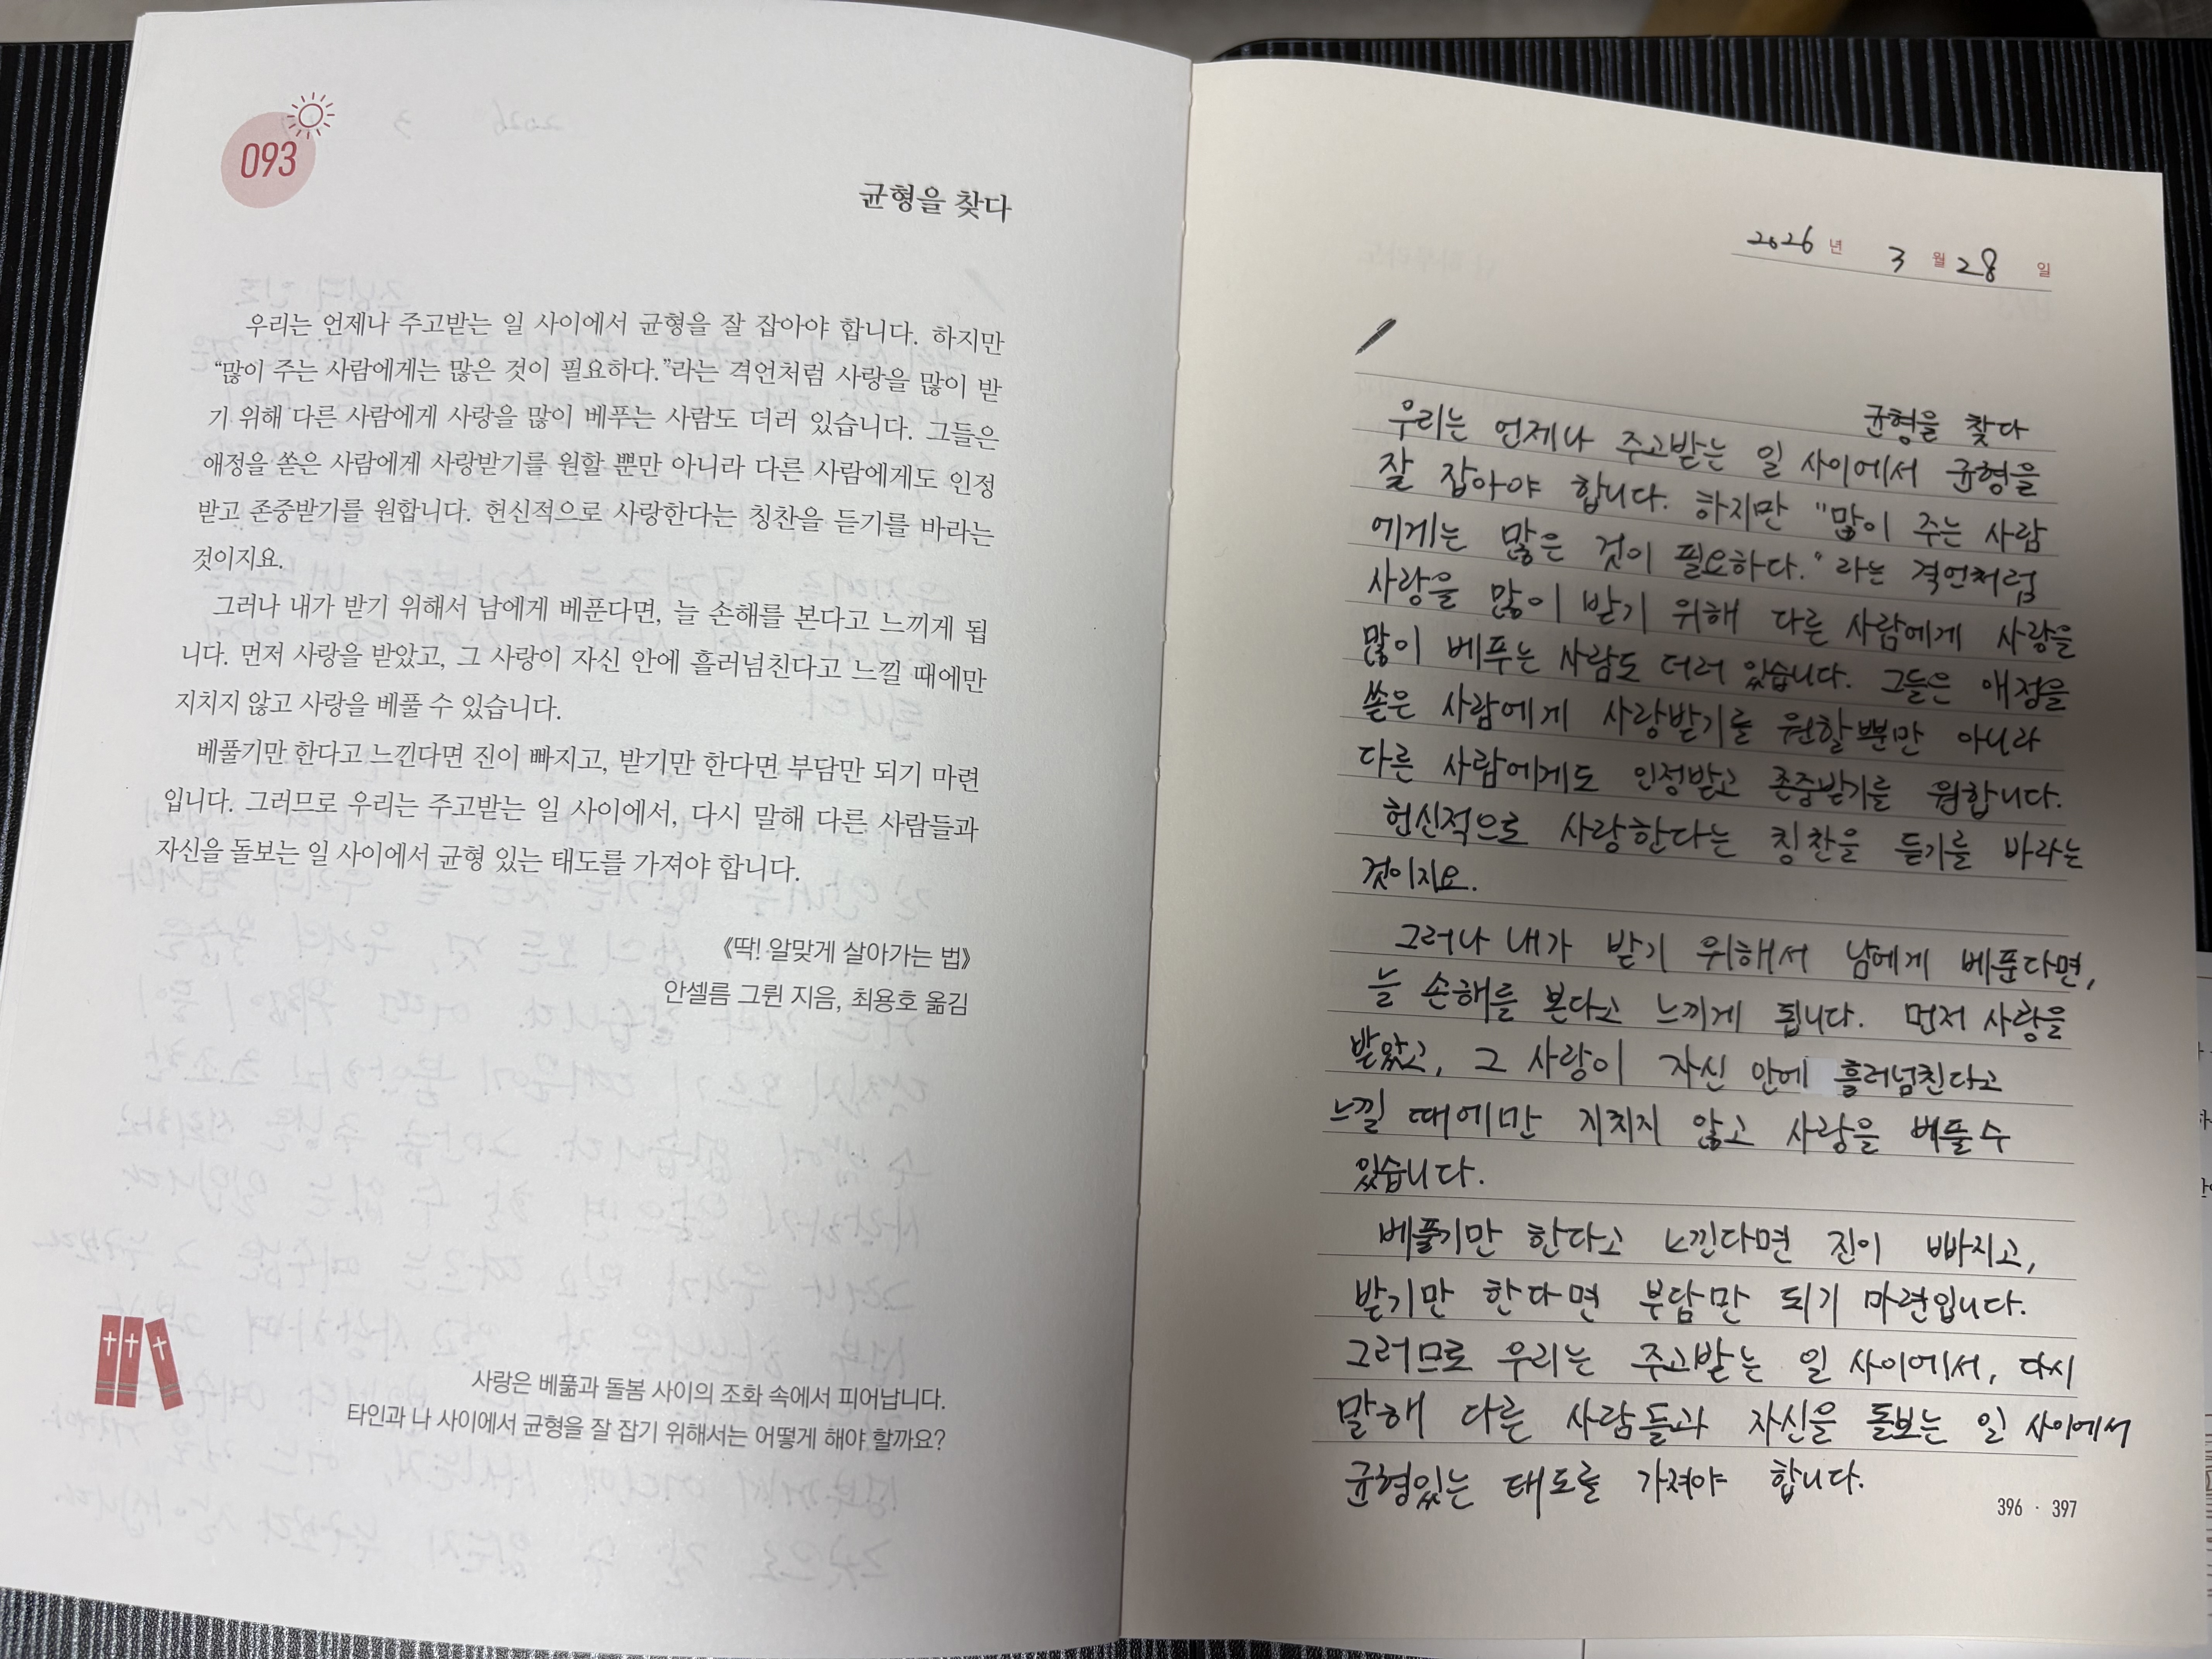 093
균형을 찾다
우리는 언제나 주고받는 일 사이에서 균형을 잘 잡아야 합니다. 하지만
“많이 주는 사람에게는 많은 것이 필요하다.”라는 격언처럼 사랑을 많이 받
기 위해 다른 사람에게 사랑을 많이 베푸는 사람도 더러 있습니다. 그들은
애정을 쏟은 사람에게 사랑받기를 원할 뿐만 아니라 다른 사람에게도 인정
받고 존중받기를 원합니다. 헌신적으로 사랑한다는 칭찬을 듣기를 바라는
것이지요.
그러나 내가 받기 위해서 남에게 베푼다면, 늘 손해를 본다고 느끼게 됩
니다. 먼저 사랑을 받았고, 그 사랑이 자신 안에 흘러넘친다고 느낄 때에만
지치지 않고 사랑을 베풀 수 있습니다.
베풀기만 한다고 느낀다면 진이 빠지고, 받기만 한다면 부담만 되기 마련
입니다. 그러므로 우리는 주고받는 일 사이에서, 다시 말해 다른 사람들과
자신을 돌보는 일 사이에서 균형 있는 태도를 가져야 합니다.
《딱! 알맞게 살아가는 법》
안셀름 그륀 지음, 최용호 옮김
사랑은 베풂과 돌봄 사이의 조화 속에서 피어납니다.
타인과 나 사이에서 균형을 잘 잡기 위해서는 어떻게 해야 할까요?
2026 년 3 월 28 일
균형을 찾다
우리는 언제나 주고받는 일 사이에서 균형을
잘 잡아야 합니다. 하지만 "많이 주는 사람
에게는 많은 것이 필요하다." 라는 격언처럼
사랑을 많이 받기 위해 다른 사람에게 사랑을
많이 베푸는 사람도 더러 있습니다. 그들은 애정을
쏟은 사람에게 사랑받기를 원할뿐만 아니라
다른 사람에게도 인정받고 존중받기를 원합니다.
헌신적으로 사랑한다는 칭찬을 듣기를 바라는
것이지요.
그러나 내가 받기 위해서 남에게 베푼다면,
늘 손해를 본다고 느끼게 됩니다. 먼저 사랑을
받았고, 그 사랑이 자신 안에 흘러넘친다고
느낄 때에만 지치지 않고 사랑을 베풀수
있습니다.
베풀기만 한다고 느낀다면 진이 빠지고,
받기만 한다면 부담만 되기 마련입니다.
그러므로 우리는 주고받는 일 사이에서, 다시
말해 다른 사람들과 자신을 돌보는 일 사이에서
균형있는 태도를 가져야 합니다.
396 · 397